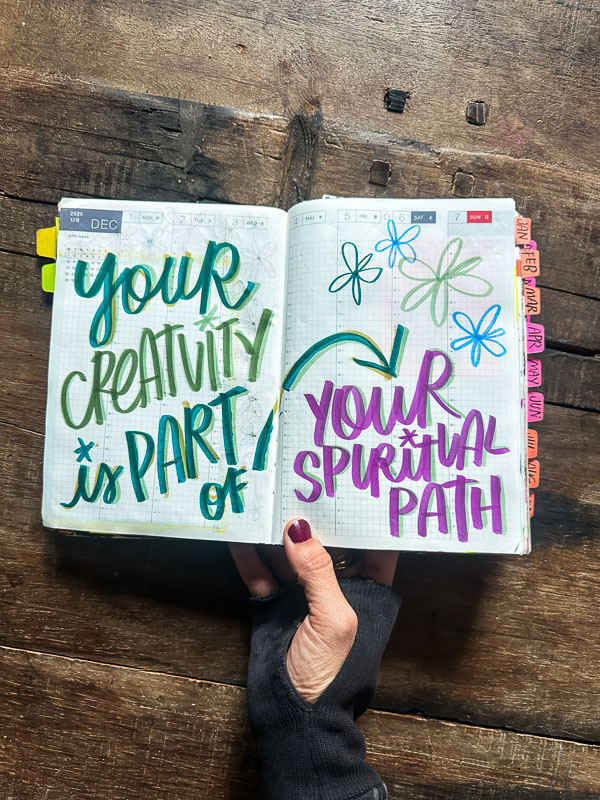 2025
12月 DEC
1 MON 2 TUE 3 WED 4 THU 5 FRI 6 SAT 7 SUN
your
CREATIVITY
is PART
OF
YOUR
SPIRITUAL
PATH
JAN
FEB
MAR
APR
MAY
JUN
JUL
AUG